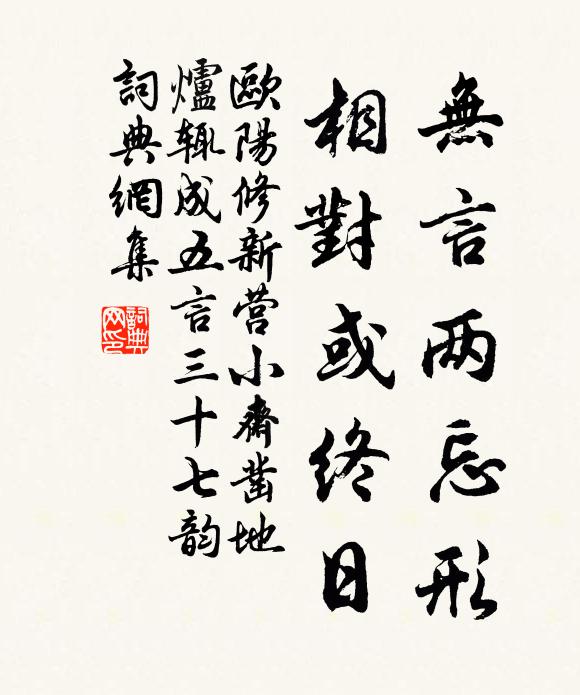 無言两忘形
相對或終日
歐陽修新营小齋凿地
爐輒成五言三十七韵
詞典網集
詞典网印